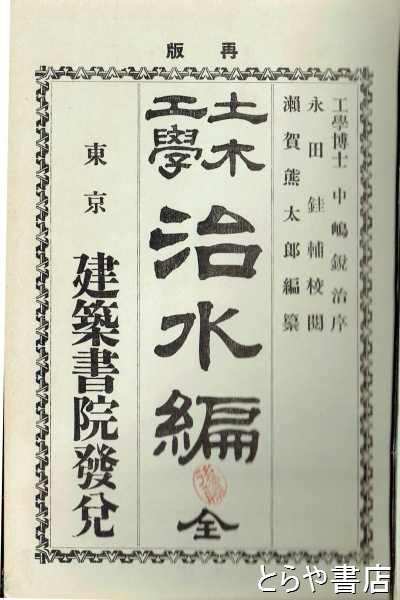 版再
工學博士 中嶋鋭治序
永田鈓輔校閲
瀬賀熊太郎編纂
土木
工學
治水編
全
東京
建築書院發兌
とらや書店